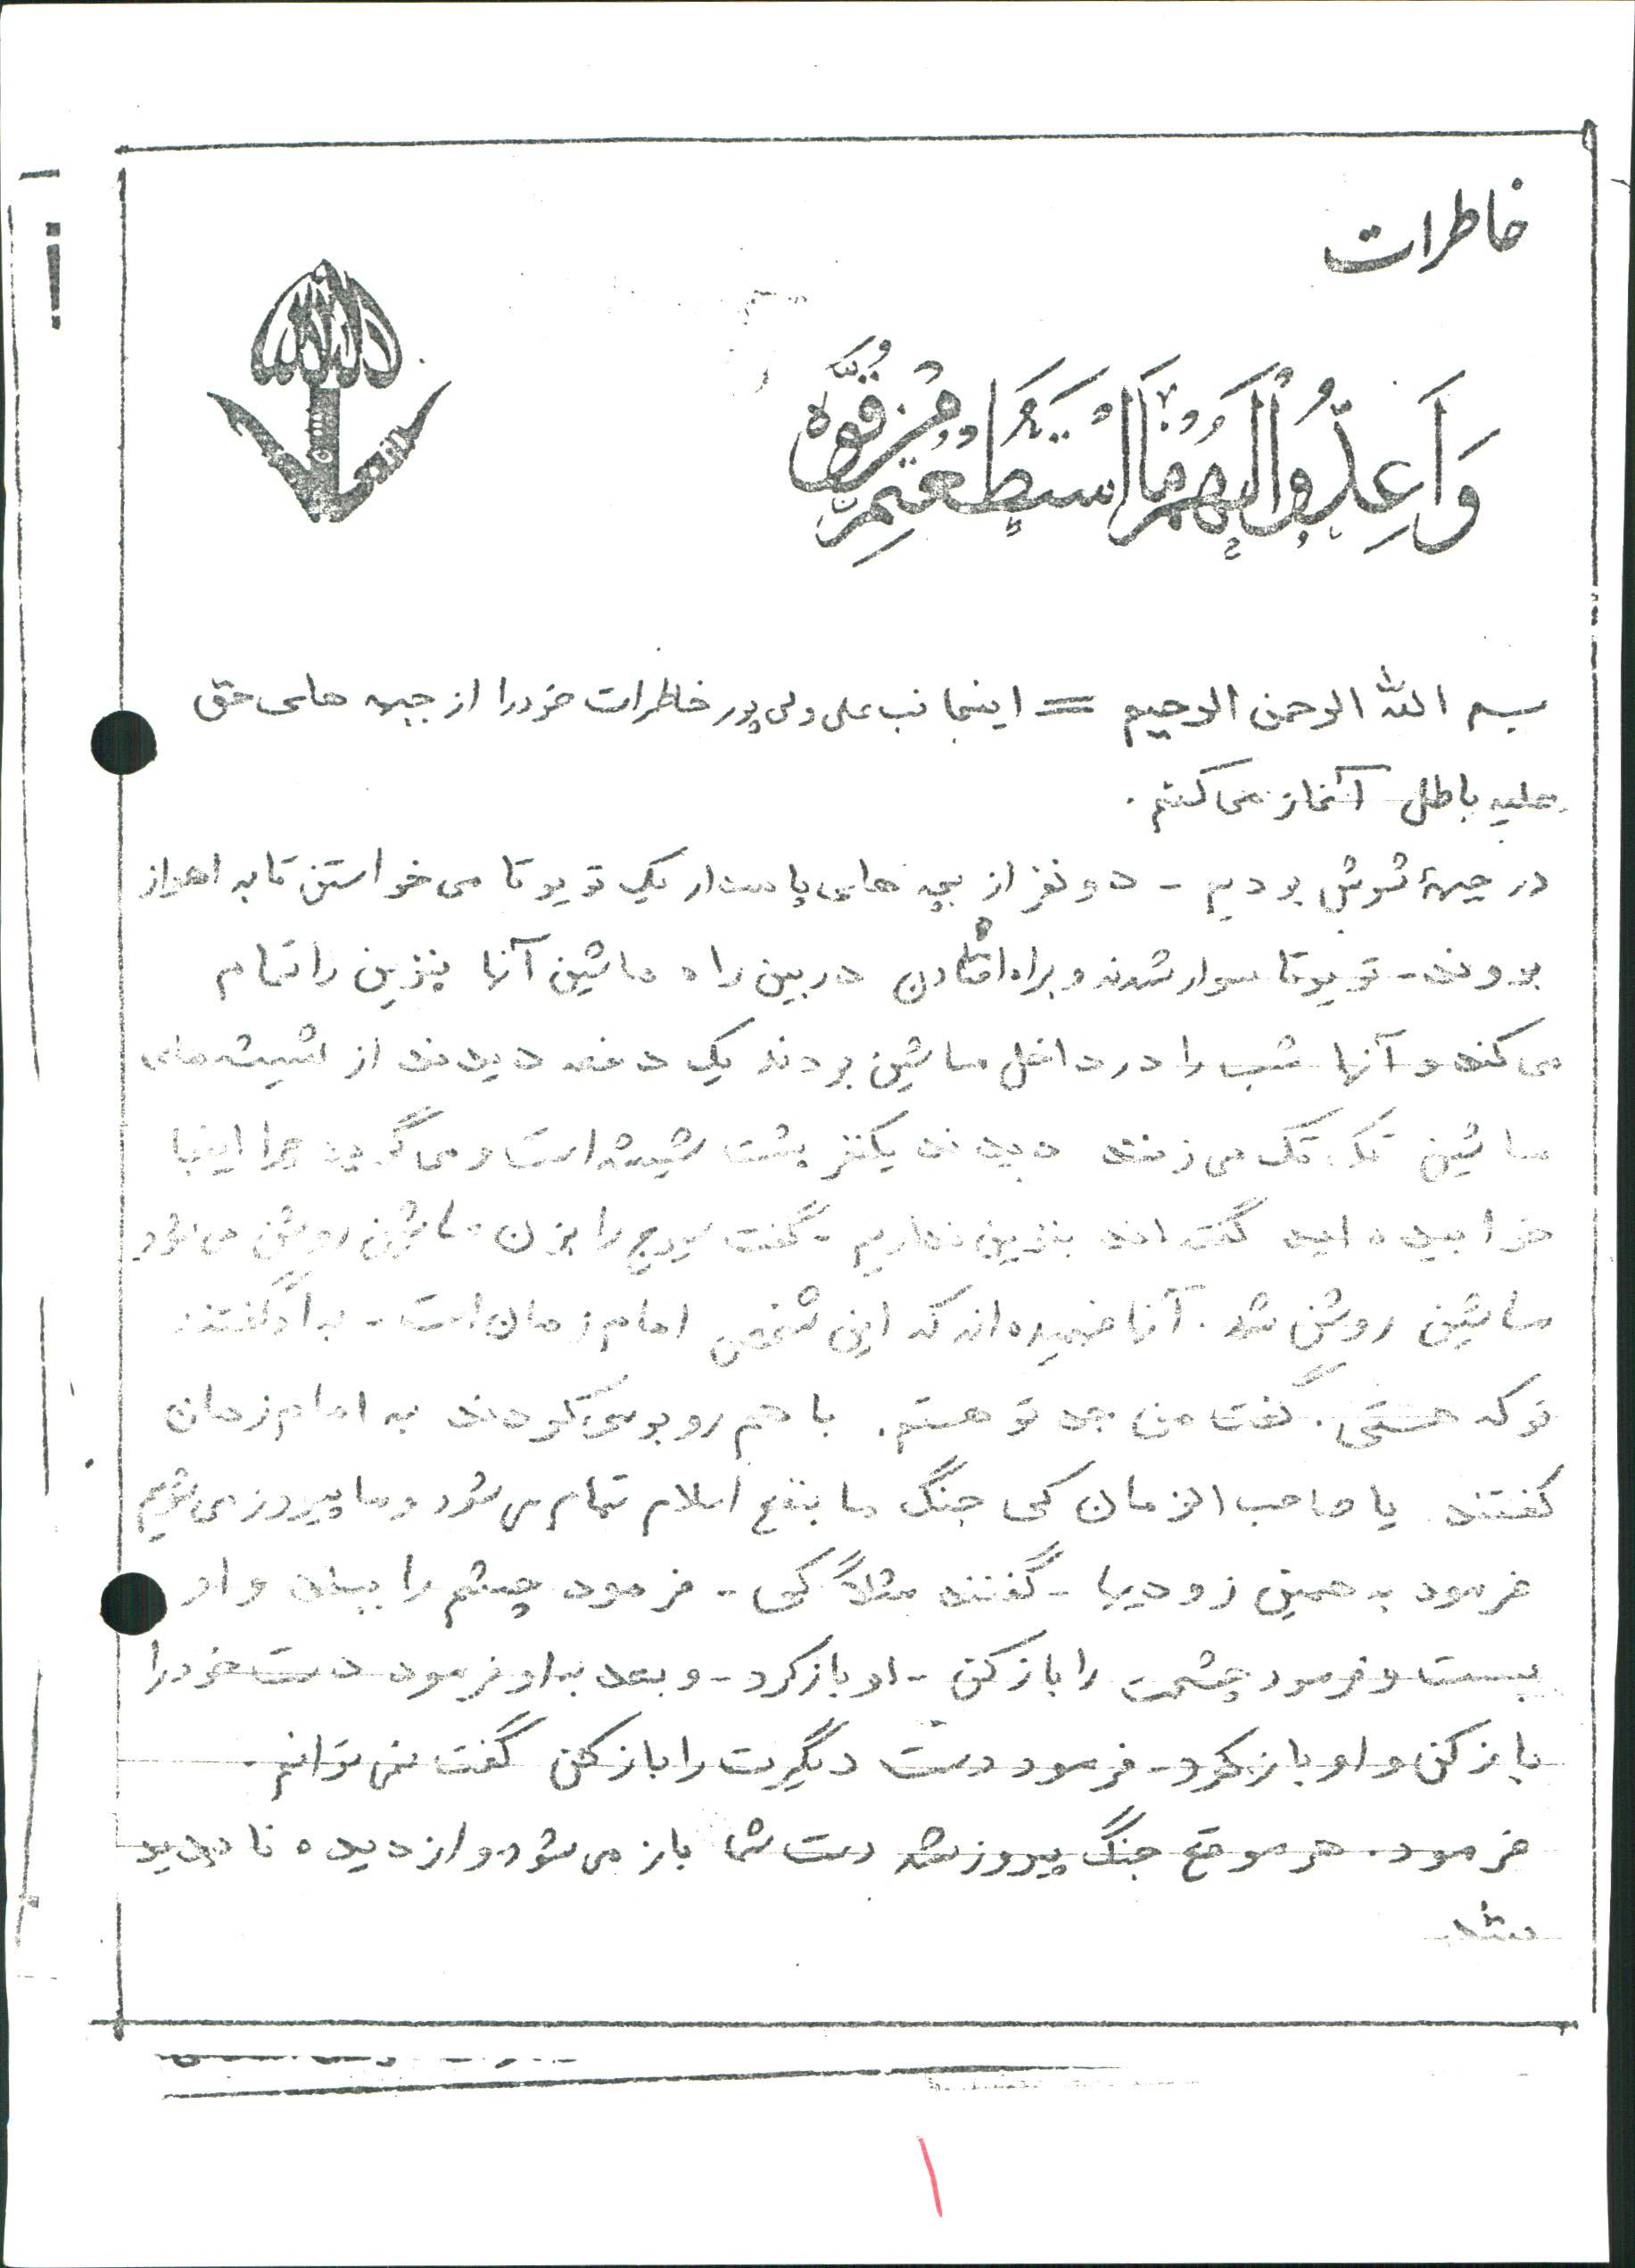 خاطرات
وَاَعِدُّوا لَهُمْ مَا اسْتَطَعْتُمْ مِنْ قُوَّةٍ
بسم الله الرحمن الرحیم = اینجانب علی ولی پور خاطرات خود را از جبهه های حق
علیه باطل آغاز می کنم .
در جبههٔ شوش بودیم - دو نفر از بچه های پاسدار یک تویوتا می خواستن تا به اهواز
بروند - تویوتا سوار شدند و براه افتادن در بین راه ماشین آنا بنزین را تمام
می کند و آنها شب را در داخل ماشین بودند یک دفعه دیدند از شیشه های
ماشین تک تک می زنند دیدند یکنفر پشت شیشه است و می گوید چرا اینجا
خوابیده اید گفته اند بنزین نداریم - گفت سویچ را بزن ماشین روشن می شود
ماشین روشن شد . آنا فهمیده اند که این شخص امام زمان است - به او گفتند
تو که هستی . گفت من جد تو هستم . با هم روبوسی کردند به امام زمان
گفتند یا صاحب الزمان کی جنگ ما بنفع اسلام تمام می شود و ما پیروز می شویم
فرمود به همین زودیها - گفتند مثلاً کی - فرمود چشم را ببند و او
بست و فرمود چشمت را باز کن - او باز کرد - و بعد به او فرمود دست خود را
باز کن و او باز کرد - فرمود دست دیگرت را باز کن گفت نمی توانم -
فرمود . هر موقع جنگ پیروز شد دست شما باز می شود و از دیده نا پدید
شد .
۱